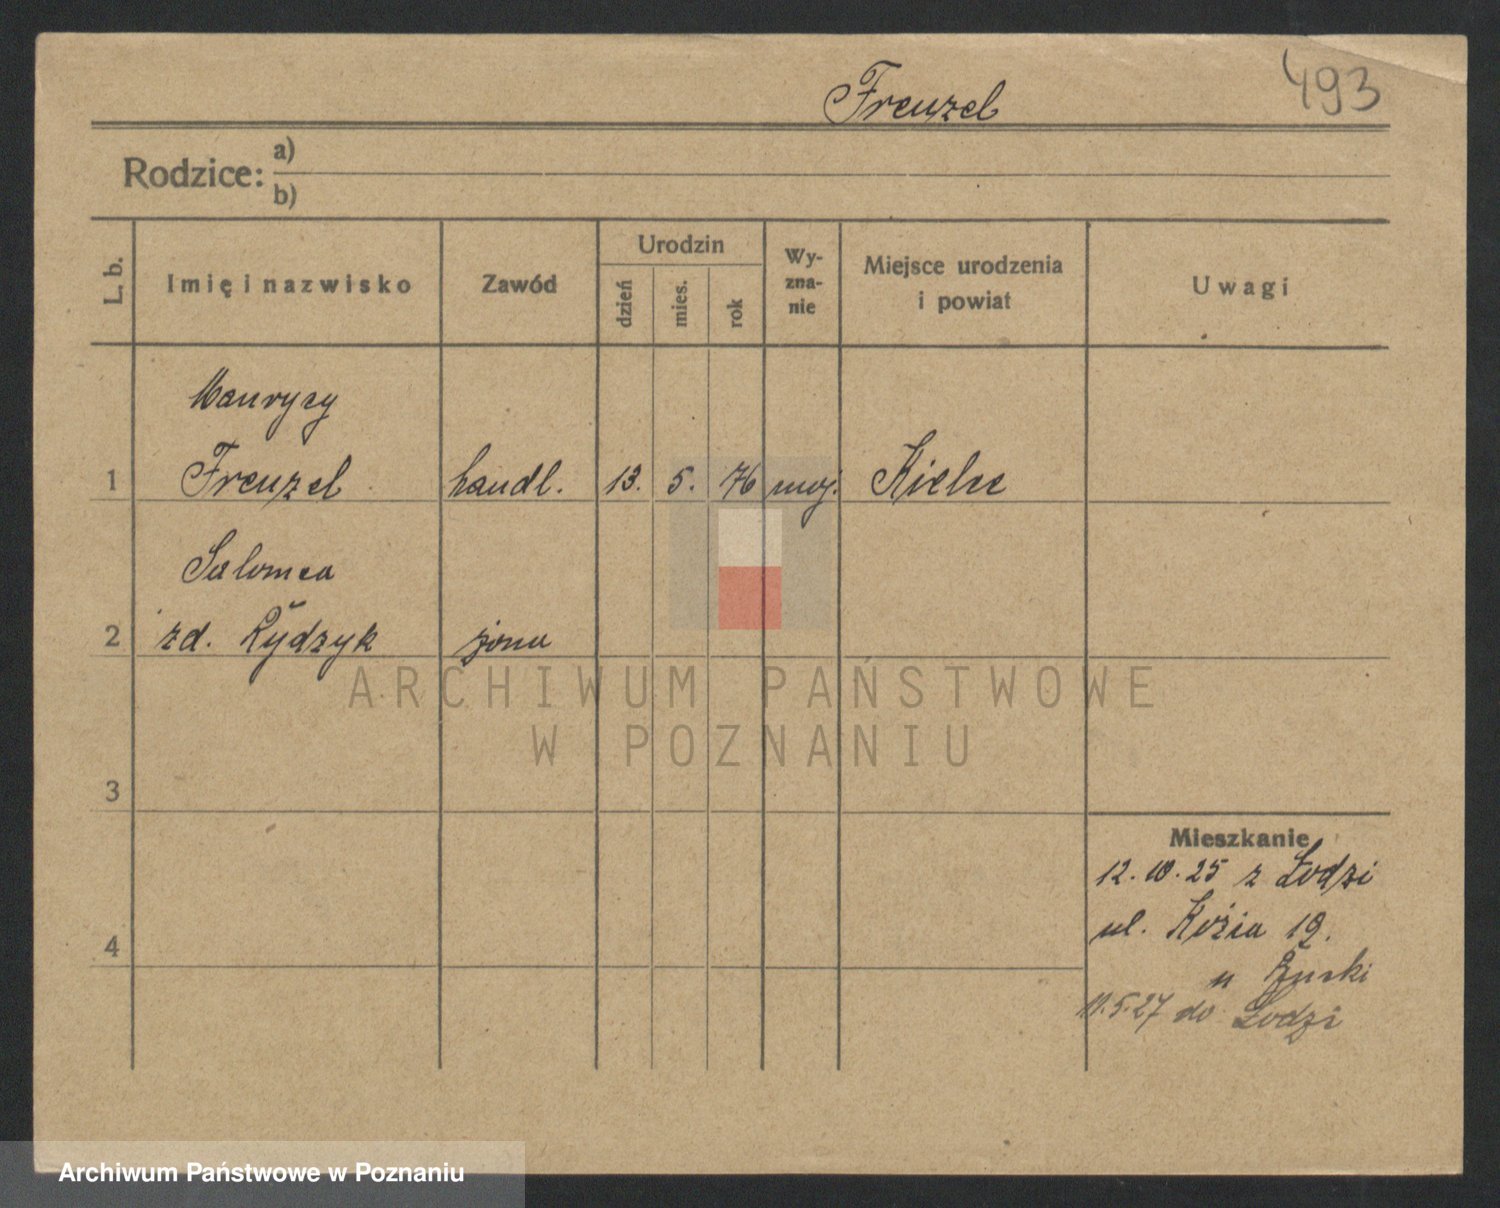 493
Frenzel
Rodzice:
a)
b)
L. b.
Imię i nazwisko
Zawód
Urodzin
dzień
mies.
rok
Wy-
zna-
nie
Miejsce urodzenia
i powiat
Uwagi
Maurycy
1 Frenzel handl. 13. 5. 76 moj. Kielce
Salomea
2 zd. Rydzyk żona
3
4
Mieszkanie
12. 10. 25 z Łodzi
ul. Kozia 19.
u
5.27 do Łodzi
ARCHIWUM PAŃSTWOWE
W POZNANIU
Archiwum Państwowe w Poznaniu